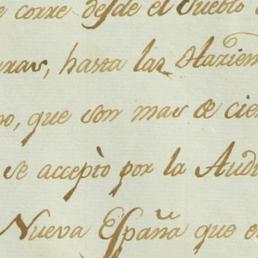 e corre desde el Pueblo
ras, hasta las Hazien
no, que son mas de cie
se acceptò por la Audi
Nueva España que e